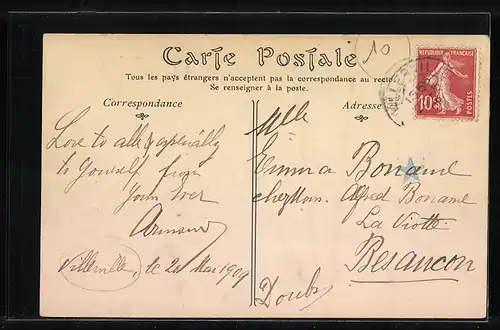 10
Carte Postale
Tous les pays étrangers n'acceptent pas la correspondance au recto
Se renseigner à la poste.
Correspondance
Adresse
RÉPUBLIQUE FRANÇAISE
10c
POSTES
Love to all & especially
to yourself from
Yours Ever
Villerville, le 20 Mai 1909
Mlle
Emma Boname
chez Mons. Alfred Boname
La Viotte
Besancon
Doubs